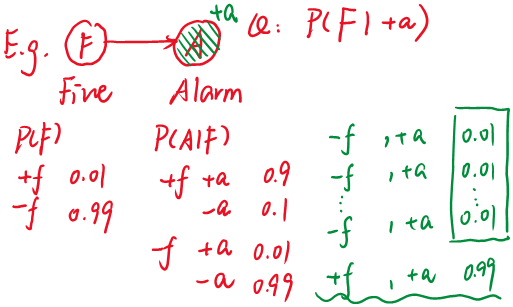 E.g. F A +a Q: P(F|+a)
Fire Alarm
P(F) P(A|F)
+f 0.01
-f 0.99
+f +a 0.9
-a 0.1
-f +a 0.01
-a 0.99
-f , +a 0.01
-f , +a 0.01
⋮ ⋮
-f , +a 0.01
+f , +a 0.99